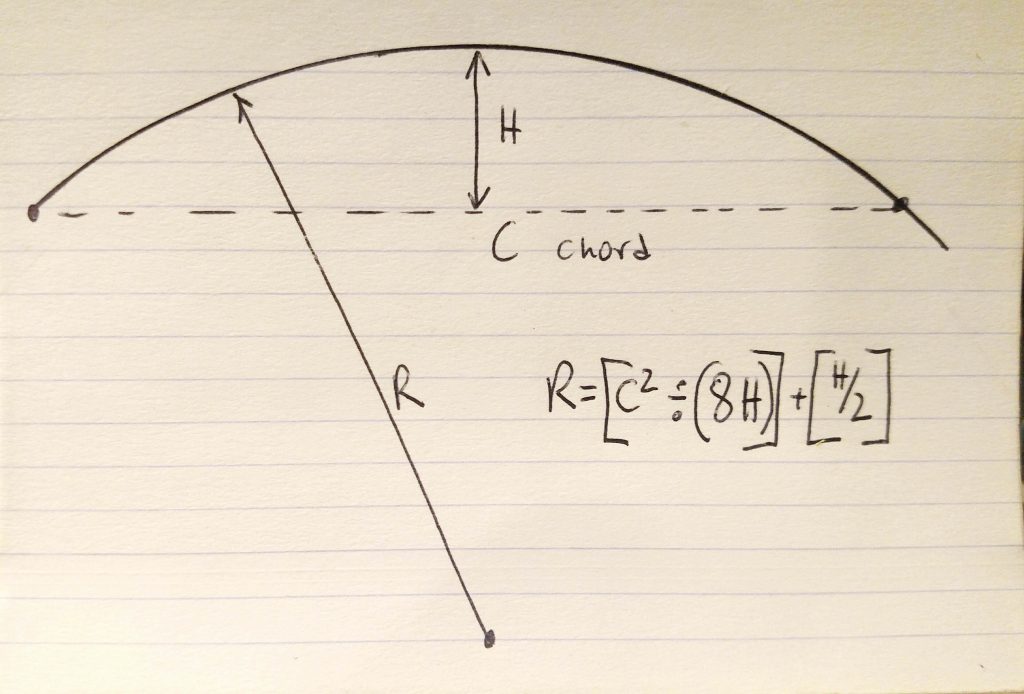 H
C chord
R
R=[C²÷(8H)]+[H/2]